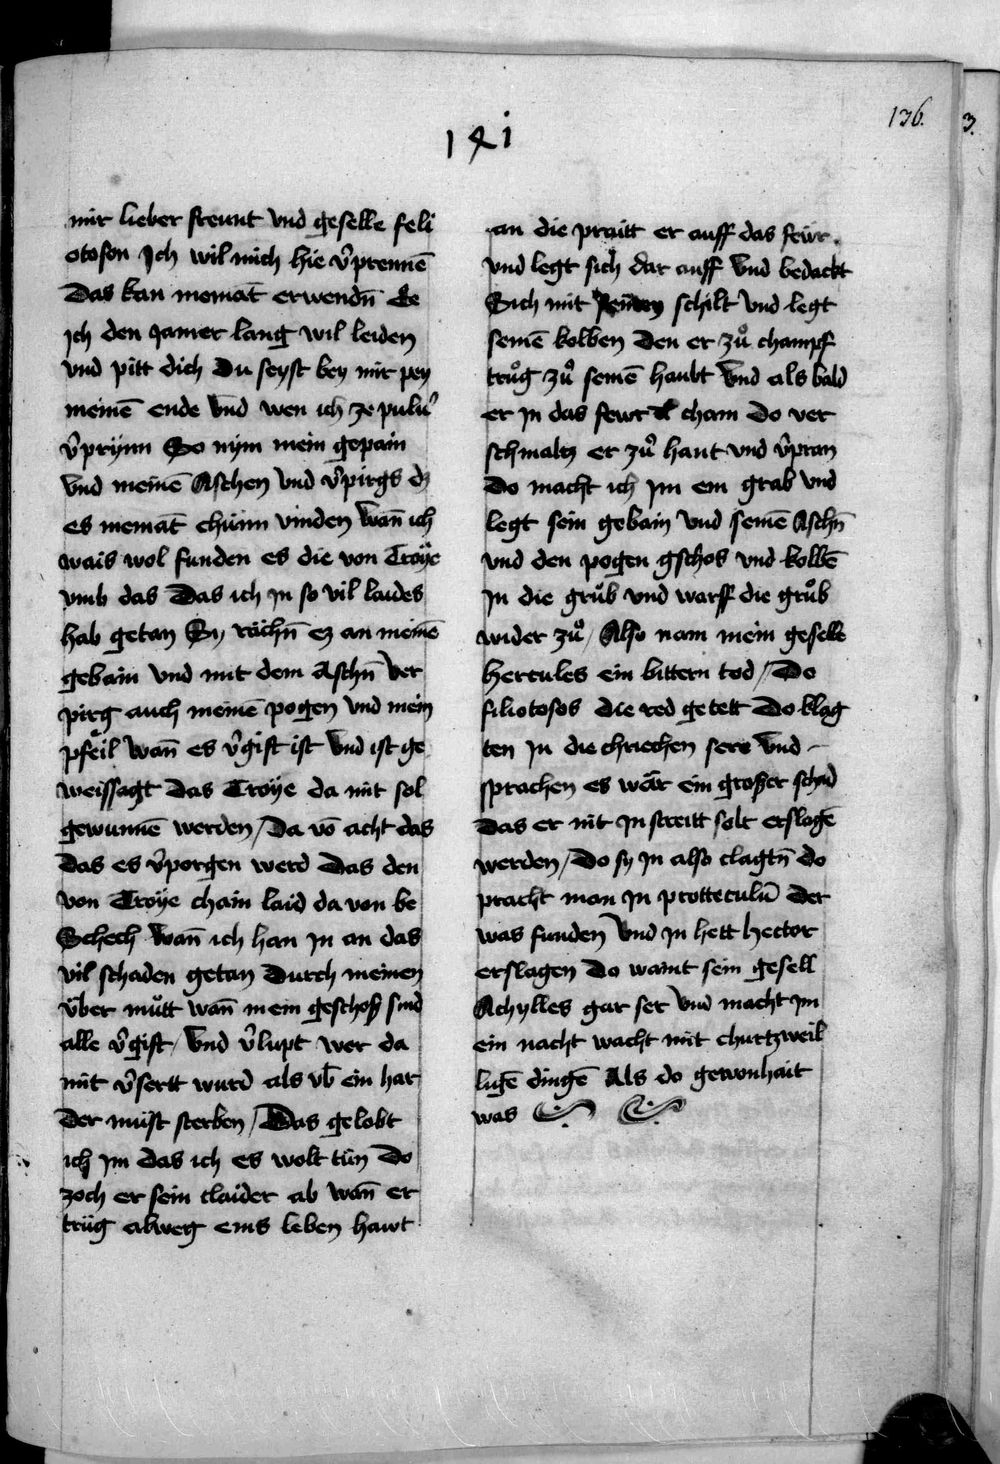 136.
3.
141
mir lieber freunt vnd geselle feli
otoson Ich wil mich hie v̉prennē
Das kan niemāt erwendn̄ Ee
ich den Jamer lang wil leiden
vnd pitt dich Du seyst bey mir pey
meinē ende Vnd wen ich ze puluꝰ
v̉prÿnn So nÿm mein gepain
Vnd meinē Aschen Vnd v̉pirgs dz
es niemāt chünn vinden wan̄ ich
wais wol funden es die von Troÿe
vmb das Das ich in so vil laides
hab getan Sy rächn̄ ez an meinē
gebain vnd mit dem Aschn̄ Ver
pirg auch meinē pogen vnd mein
pfeil wan̄ es v̉gift ist Vnd ist ge
weissagt das Troÿe da mit sol
gewunnē werden / Da vō acht das
das es v̉porgen werd Das den
von Troÿe chain laid da von be
Schech Wan̄ ich han in an das
vil schaden getan Durch meinen
v̈ber můtt wan̄ mein geschoß sind
alle v̉gift / Vnd v̉lupt wer da
mit v̉sertt wurd als vb̄ ein har
Der müst sterben / Das gelobt
ich im das ich es wolt tün Do
zoch er sein claider ab wan̄ er
trüg alweg eins leben hawt
an die praitt er auff das feẅr.
vnd legt sich dar auff Vnd bedackt
Sich mit schilt vnd legt
seinē kolben Den er zů champf
trůg zů seinē haubt Vnd als bald
er in das fewr cham Do ver
schmaltz er zů haut vnd v̉pran
Do macht ich im ein grab vnd
legt sein gebain vnd seinē Aschn̄
vnd den pogen gschos vnd kolbē
In die grůb vnd warff die grůb
wider zů / Also nam mein geselle
Hercules ein bittern tod / Do
filiotosos die red gelett Do klag
ten In die chriechen sere Vnd -
sprachen es wär ein großer schad
Das er nit In streitt solt erslagē
werden / Do sy In also clagtn̄ do
pracht man In protteculū Der
was funden Vnd in hett hector
erslagen Do waint sein gesell
Achylles gar ser Vnd macht im
ein nacht wacht mit churtzweil
ligē dingē Als do gewonhait
was